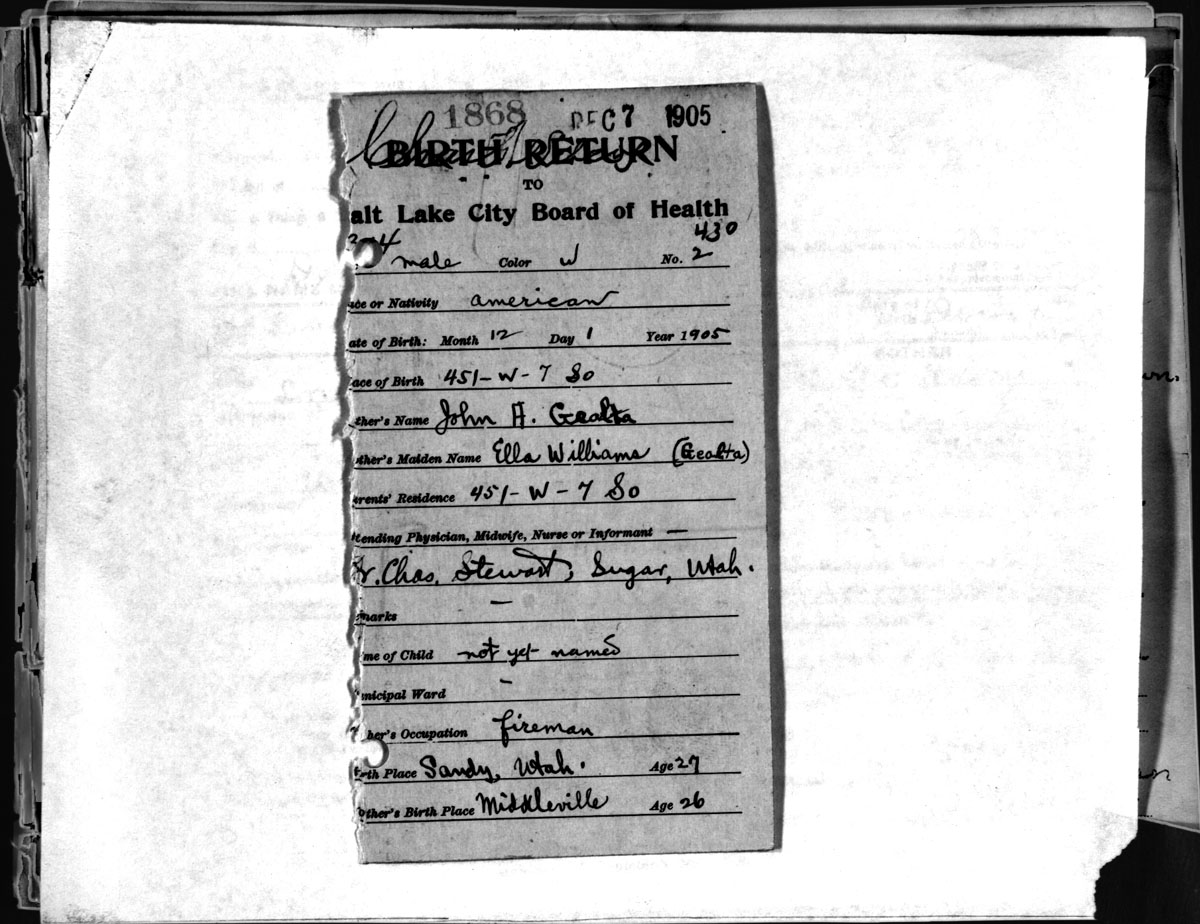 1868 DEC 7 1905
BIRTH RETURN
TO
alt Lake City Board of Health
430
male Color W No. 2
ace or Nativity american
ate of Birth: Month 12 Day 1 Year 1905
ace of Birth 451-W-7 So
ther's Name John H. Gealta
other's Maiden Name Ella Williams (Gealta)
arents' Residence 451-W-7 So
ttending Physician, Midwife, Nurse or Informant —
Dr. Chas. Stewart, Sugar, Utah.
emarks —
me of Child not yet named
unicipal Ward -
her's Occupation fireman
rth Place Sandy, Utah. Age 27
other's Birth Place Middleville Age 26